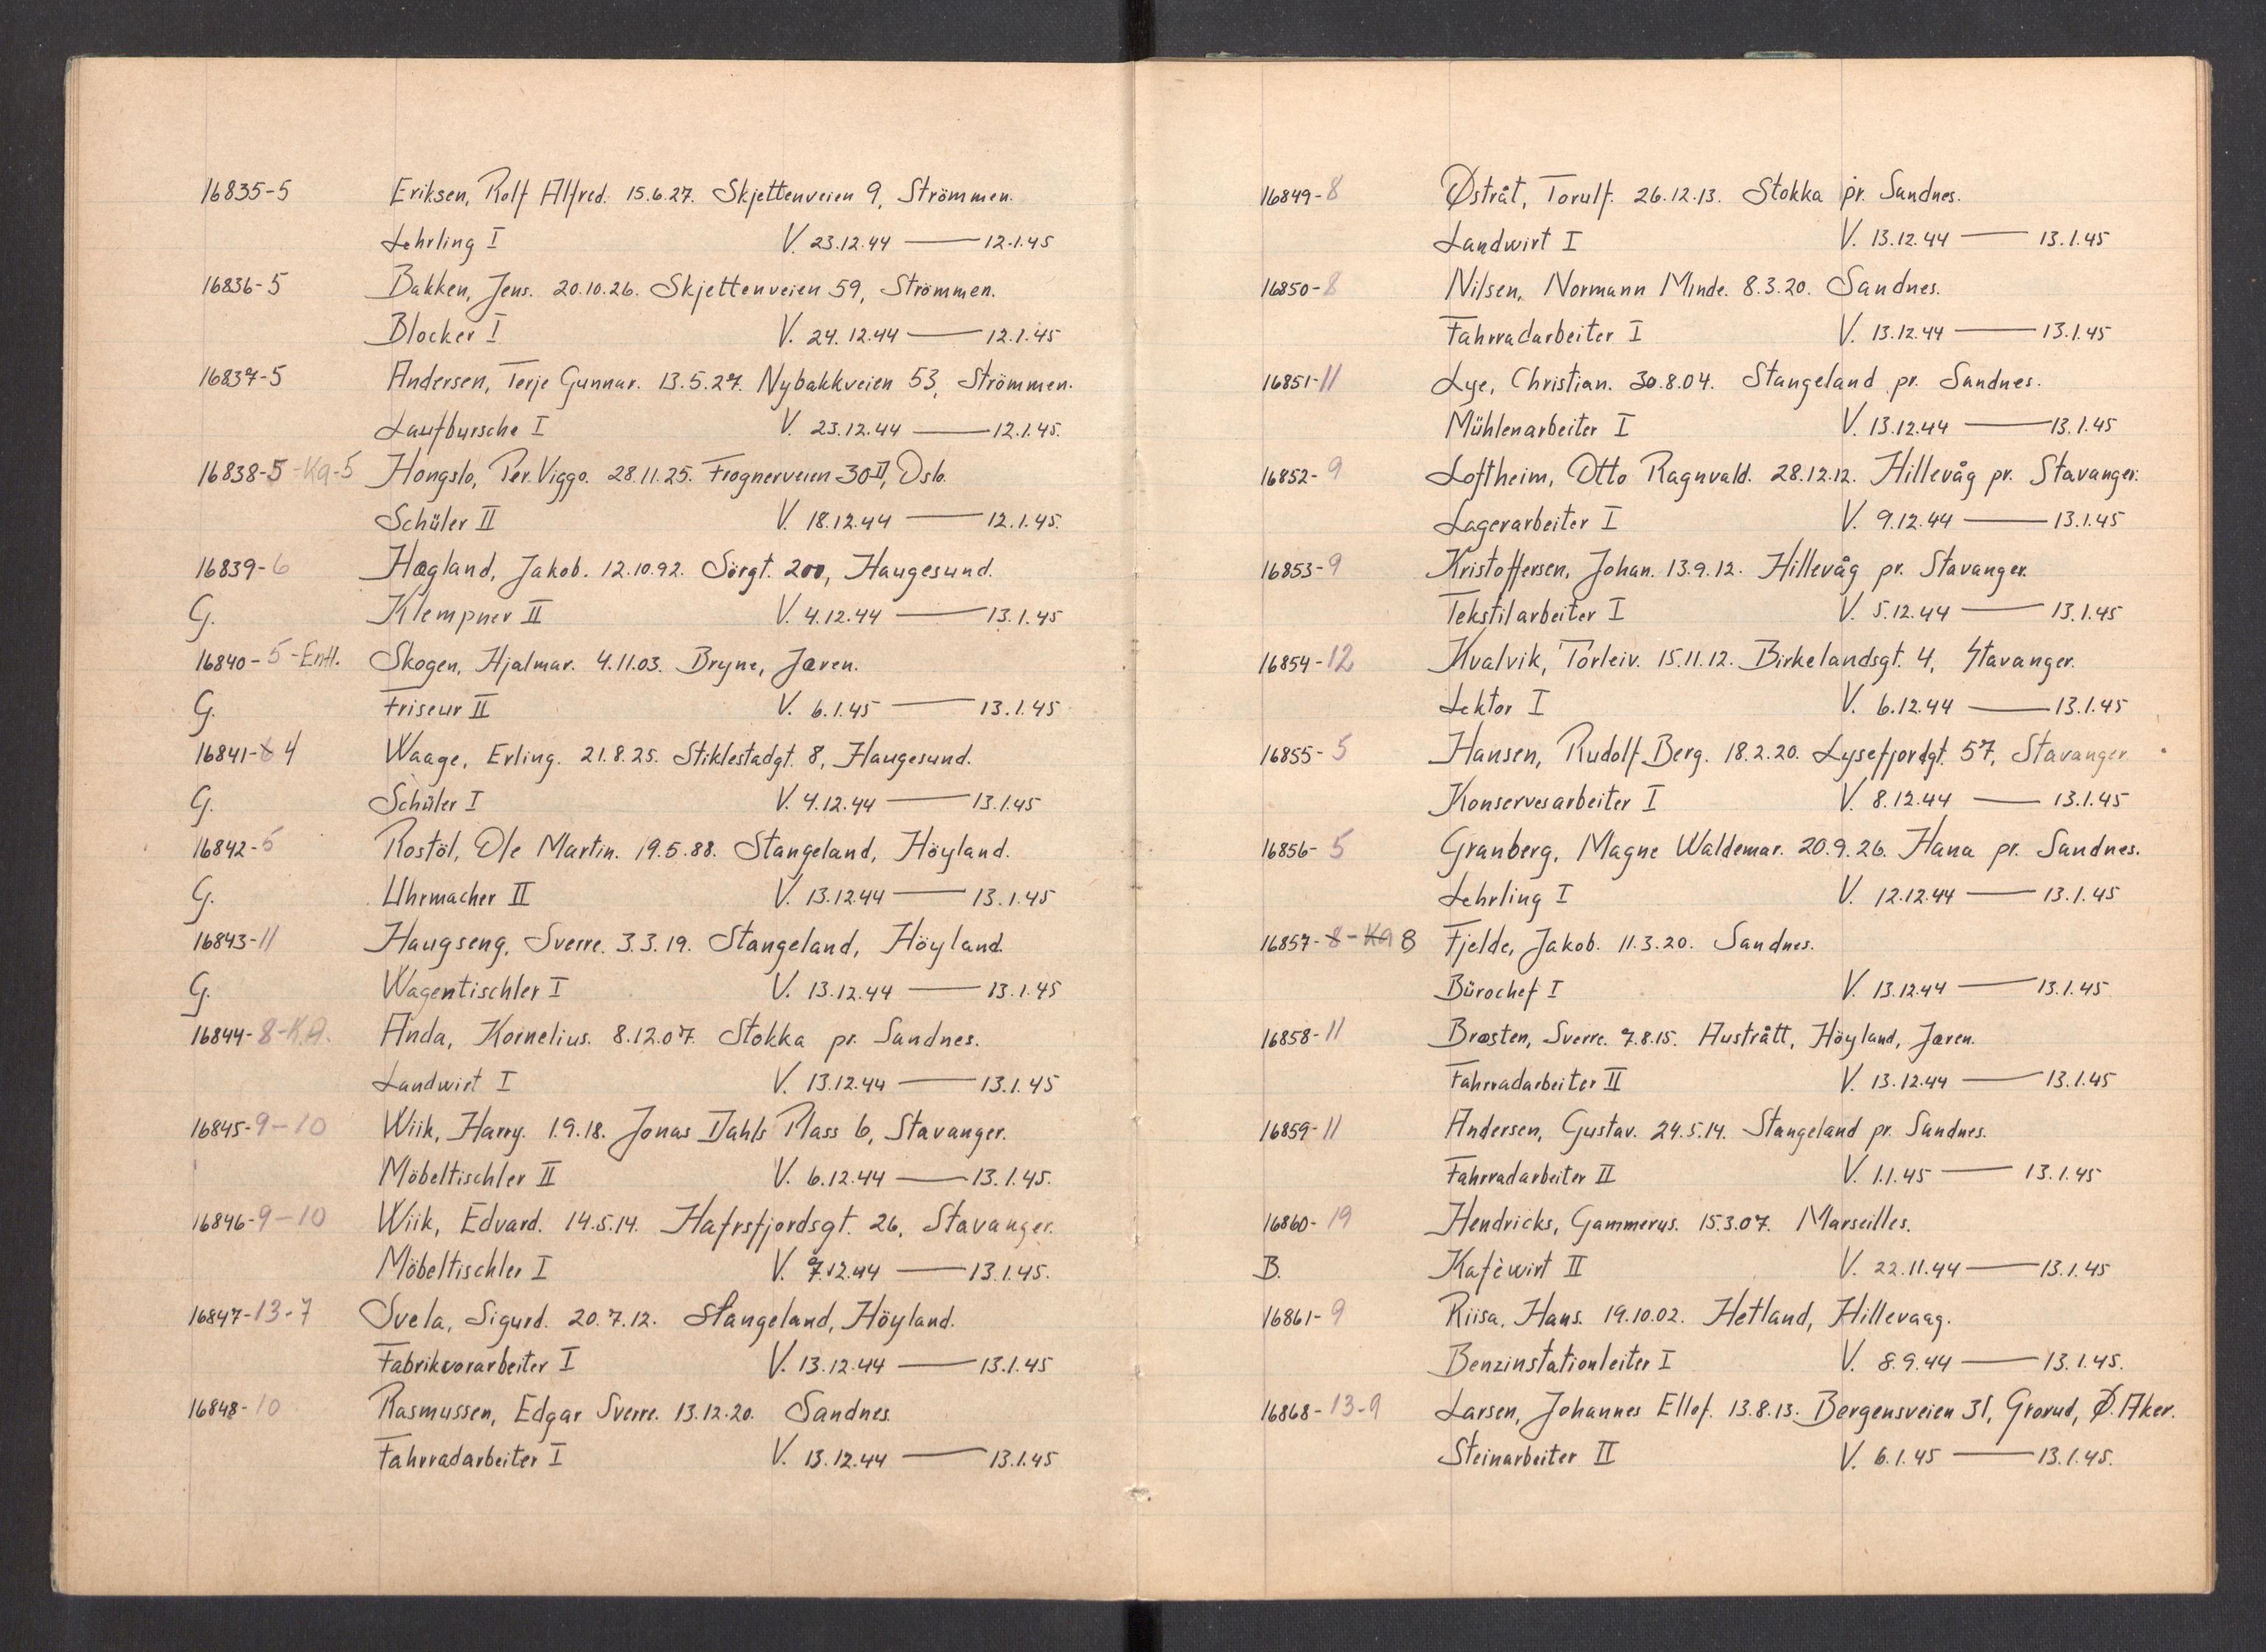 16835-5 Eriksen, Rolf Alfred. 15.6.27. Skjettenveien 9, Strömmen.
Lehrling I V. 23.12.44 — 12.1.45
16836-5 Bakken, Jens. 20.10.26. Skjettenveien 59, Strömmen.
Blocker I V. 24.12.44 — 12.1.45
16837-5 Andersen, Terje Gunnar. 13.5.27. Nybakkveien 53, Strömmen.
Laufbursche I V. 23.12.44 — 12.1.45.
16838-5-Ka-5 Hongslo, Per Viggo. 28.11.25. Frognerveien 30 II, Oslo.
Schüler II V. 18.12.44 — 12.1.45.
16839-6 Hagland, Jakob. 12.10.92. Sörgt. 200, Haugesund.
G. Klempner II V. 4.12.44 — 13.1.45
16840-5-Entl. Skogen, Hjalmar. 4.11.03. Bryne, Jæren.
G. Friseur II V. 6.1.45 — 13.1.45
16841-6 4 Waage, Erling. 21.8.25. Stiklestadgt. 8, Haugesund.
G. Schüler I V. 4.12.44 — 13.1.45
16842-5 Rostöl, Ole Martin. 19.5.88. Stangeland, Höyland.
G. Uhrmacher II V. 13.12.44 — 13.1.45
16843-11 Haugseng, Sverre. 3.3.19. Stangeland, Höyland.
G. Wagentischler I V. 13.12.44 — 13.1.45
16844-8-K.A. Anda, Kornelius. 8.12.07. Stokka pr. Sandnes.
Landwirt I V. 13.12.44 — 13.1.45
16845-9-10 Wiik, Harry. 1.9.18. Jonas Dahls Plass 6, Stavanger.
Möbeltischler II V. 6.12.44 — 13.1.45.
16846-9-10 Wiik, Edvard. 14.5.14. Hafrsfjordsgt. 26, Stavanger.
Möbeltischler I V. 7.12.44 — 13.1.45.
16847-13-7 Svela, Sigurd. 20.7.12. Stangeland, Höyland.
Fabrikvorarbeiter I V. 13.12.44 — 13.1.45
16848-10 Rasmussen, Edgar Sverre. 13.12.20. Sandnes.
Fahrradarbeiter I V. 13.12.44 — 13.1.45
16849-8 Østråt, Torulf. 26.12.13. Stokka pr. Sandnes.
Landwirt I V. 13.12.44 — 13.1.45
16850-8 Nilsen, Normann Minde. 8.3.20. Sandnes.
Fahrradarbeiter I V. 13.12.44 — 13.1.45
16851-11 Lye, Christian. 30.8.04. Stangeland pr. Sandnes.
Mühlenarbeiter I V. 13.12.44 — 13.1.45
16852-9 Loftheim, Otto Ragnvald. 28.12.12. Hillevåg pr. Stavanger.
Lagerarbeiter I V. 9.12.44 — 13.1.45
16853-9 Kristoffersen, Johan. 13.9.12. Hillevåg pr. Stavanger.
Tekstilarbeiter I V. 5.12.44 — 13.1.45
16854-12 Kvalvik, Torleiv. 15.11.12. Birkelandsgt. 4, Stavanger.
Lektor I V. 6.12.44 — 13.1.45
16855-5 Hansen, Rudolf Berg. 18.2.20. Lysefjordgt. 57, Stavanger.
Konservesarbeiter I V. 8.12.44 — 13.1.45
16856-5 Granberg, Magne Waldemar. 20.9.26. Hana pr. Sandnes.
Lehrling I V. 12.12.44 — 13.1.45
16857-8-Ka 8 Fjelde, Jakob. 11.3.20. Sandnes.
Bürochef I V. 13.12.44 — 13.1.45
16858-11 Brosten, Sverre. 7.8.15. Austrått, Höyland, Jæren.
Fahrradarbeiter II V. 13.12.44 — 13.1.45
16859-11 Andersen, Gustav. 24.5.14. Stangeland pr. Sandnes.
Fahrradarbeiter II V. 1.1.45 — 13.1.45
16860-19 Hendricks, Gammerus. 15.3.07. Marseilles.
B. Kaféwirt II V. 22.11.44 — 13.1.45
16861-9 Riisa, Hans. 19.10.02. Hetland, Hillevaag.
Benzinstationleiter I V. 8.9.44 — 13.1.45.
16868-13-9 Larsen, Johannes Ellef. 13.8.13. Bergensveien 31, Grorud, Ø. Aker.
Steinarbeiter II V. 6.1.45 — 13.1.45.